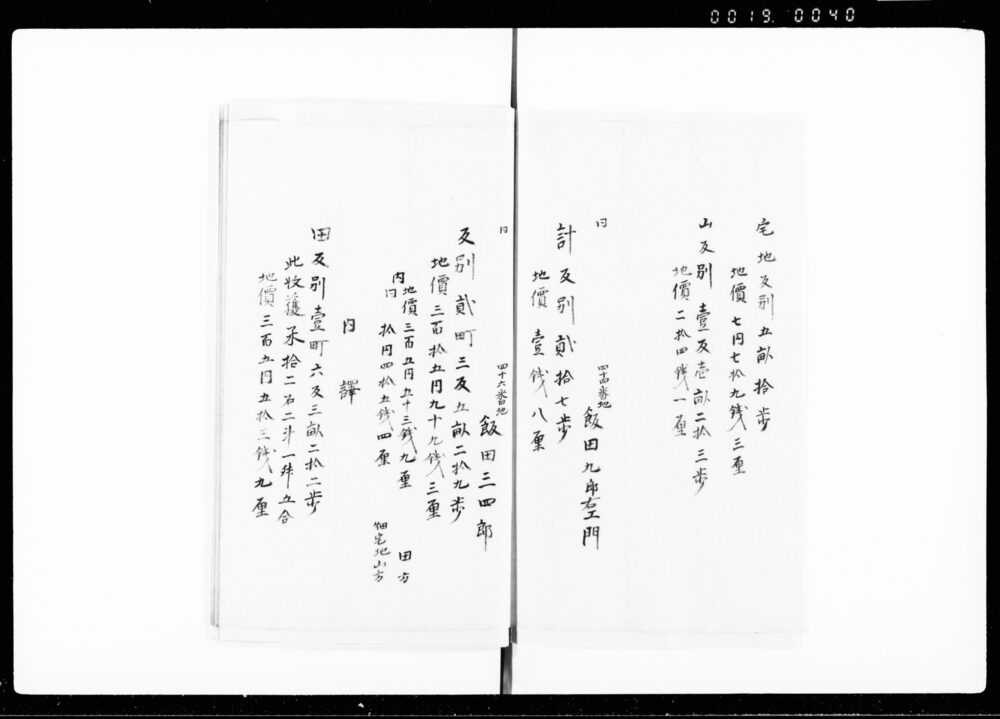 0019. 0040
宅地反別五畝拾歩
地價七円七拾九銭三厘
山反別壹反壱畝二拾三歩
地價二拾四銭一厘
同
四十四番地
飯田九郎右エ門
計反別貳拾七歩
地價壹銭八厘
同
四十六番地
飯田三四郎
反別貳町三反五畝二拾九歩
地價三百拾五円九十九銭三厘
内
地價三百五円五十三銭九厘 田方
同拾円四拾五銭四厘 畑宅地山方
内譯
田反別壹町六反三畝二拾二歩
此收獲米拾二石二斗一舛五合
地價三百五円五拾三銭九厘